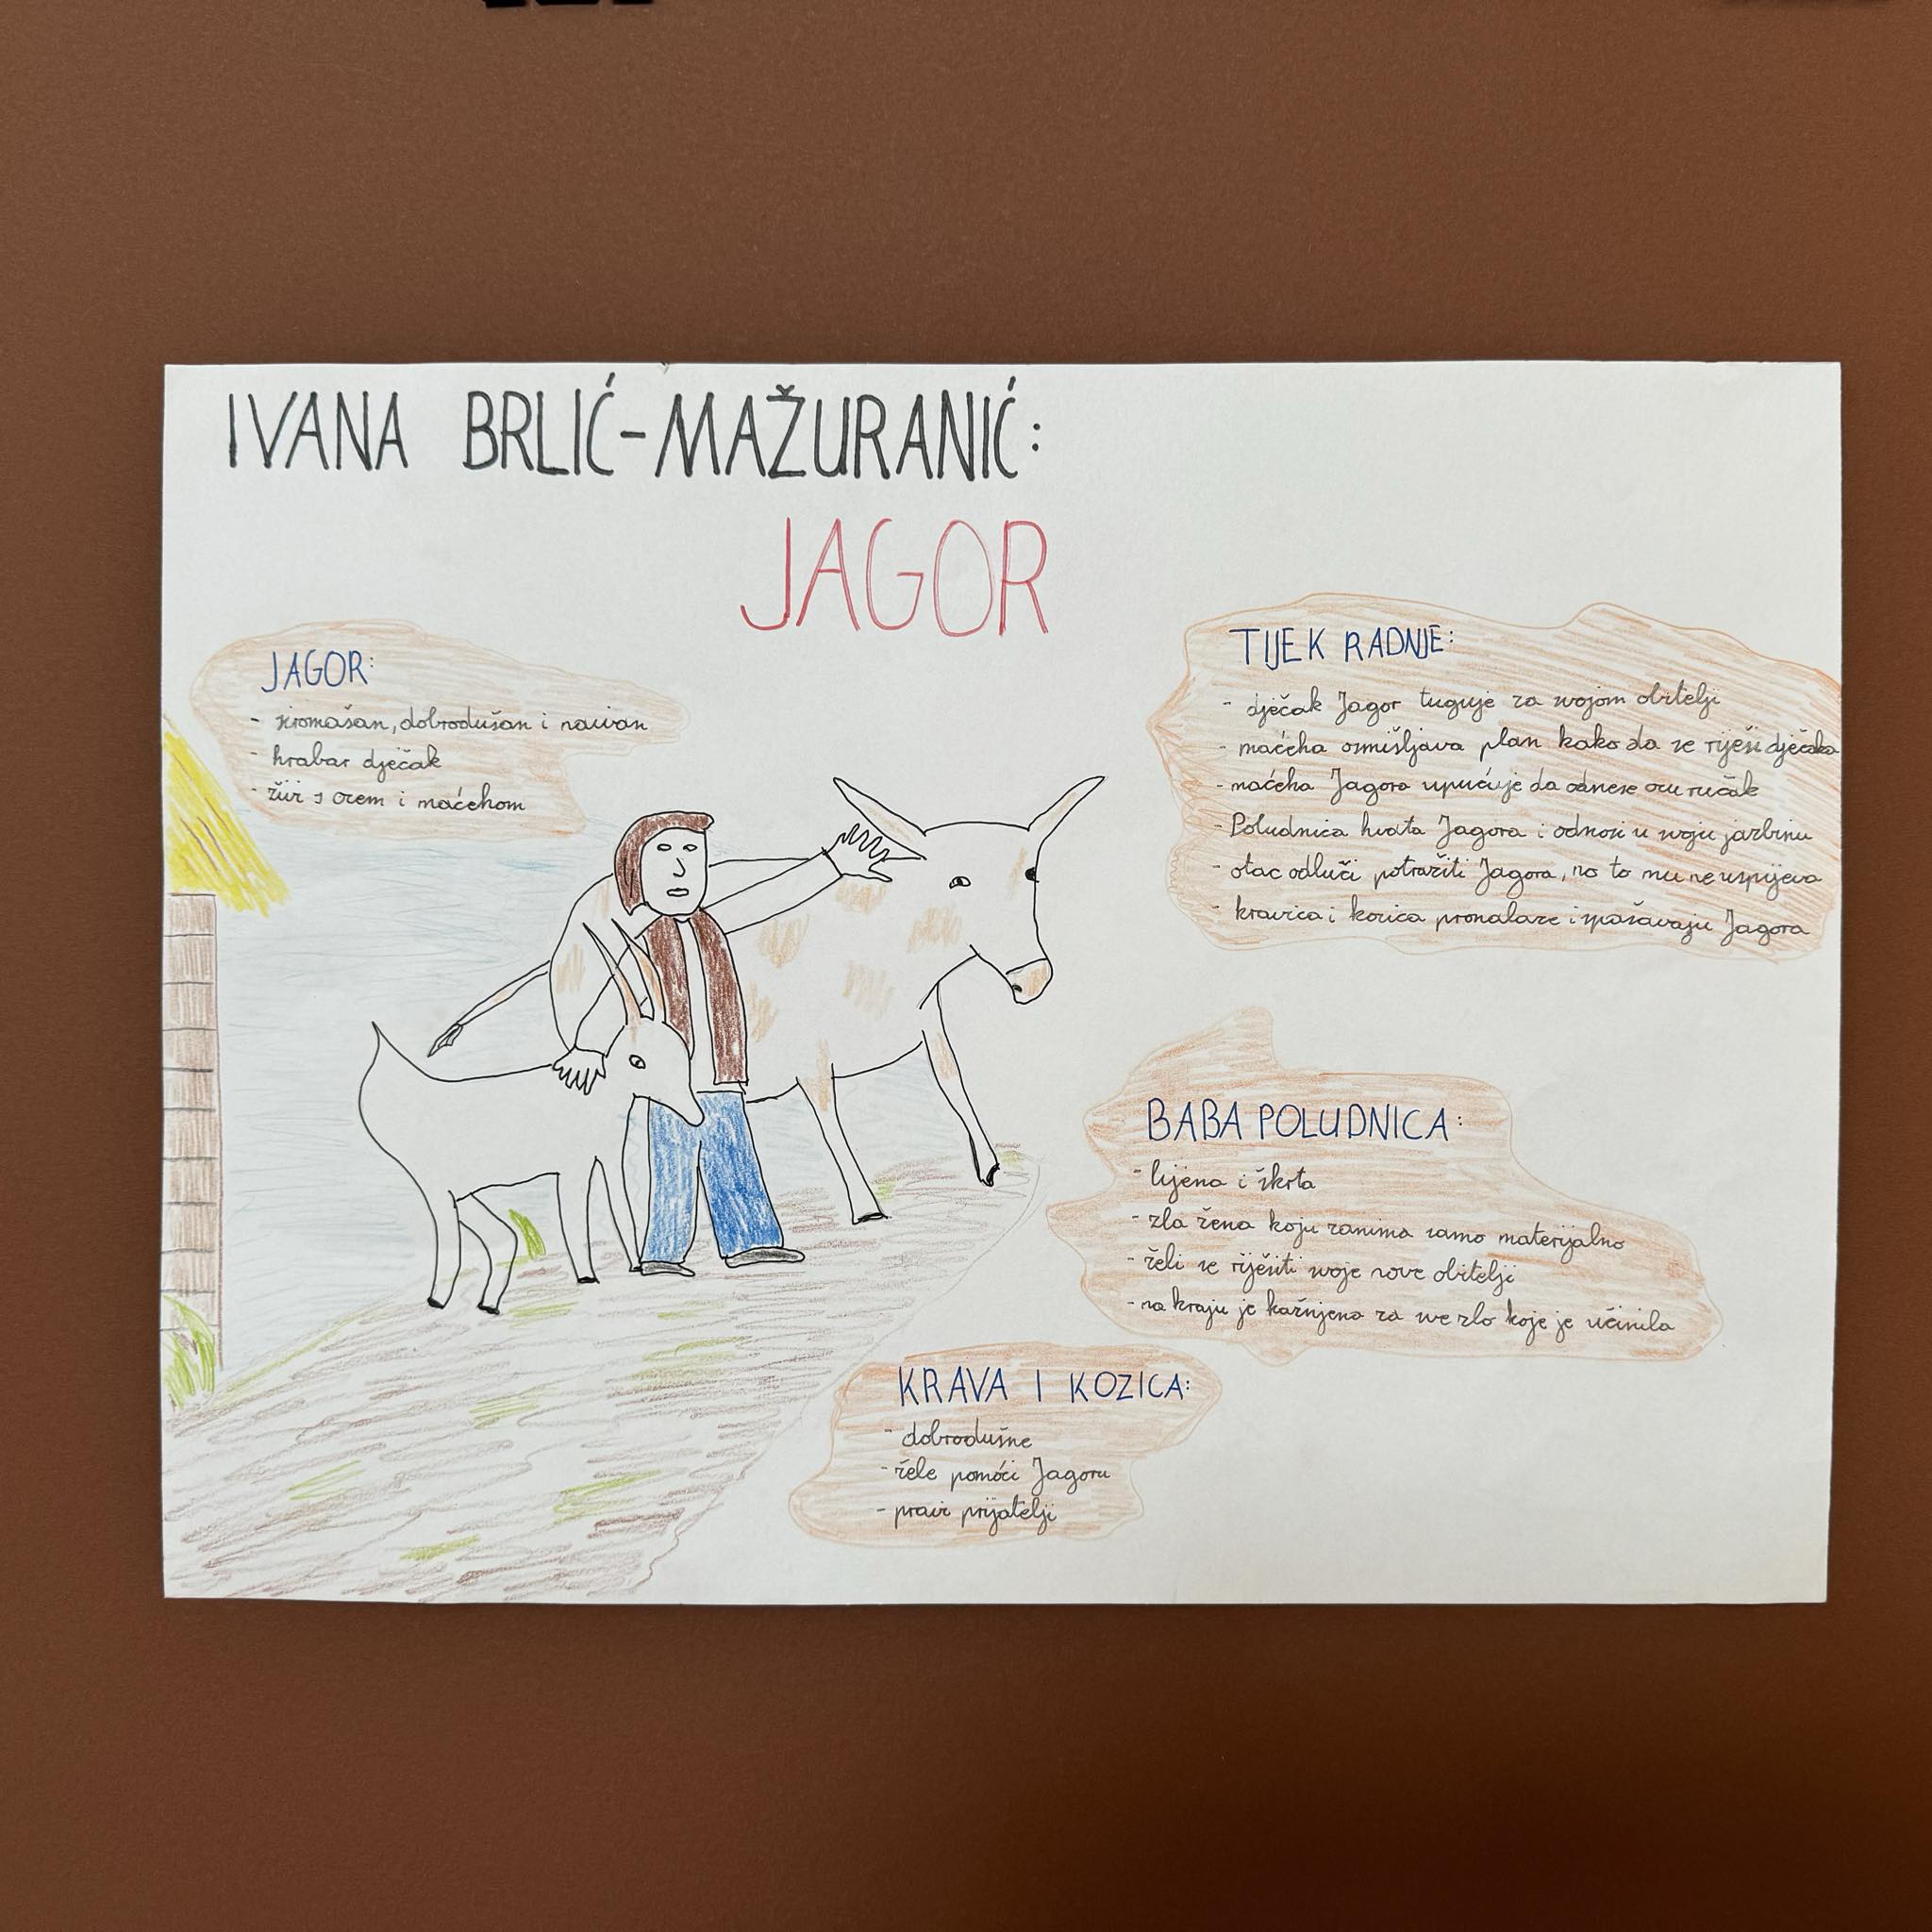 IVANA BRLIĆ-MAŽURANIĆ:
JAGOR
JAGOR:
- siromašan, dobrodušan i naivan
- hrabar dječak
- živi s ocem i maćehom
TIJEK RADNJE:
- dječak Jagor tuguje za svojom obitelji
- maćeha osmišljava plan kako da se riješi dječaka
- maćeha Jagora upućuje da odnese ocu ručak
- Poludnica hvata Jagora i odnosi u svoju jazbinu
- otac odluči potražiti Jagora, no to mu ne uspijeva
- kravica i kozica pronalaze i spašavaju Jagora
BABA POLUDNICA:
- lijena i škrta
- zla žena koju zanima samo materijalno
- želi se riješiti svoje nove obitelji
- na kraju je kažnjena za sve zlo koje je učinila
KRAVA I KOZICA:
- dobrodušne
- žele pomoći Jagoru
- pravi prijatelji